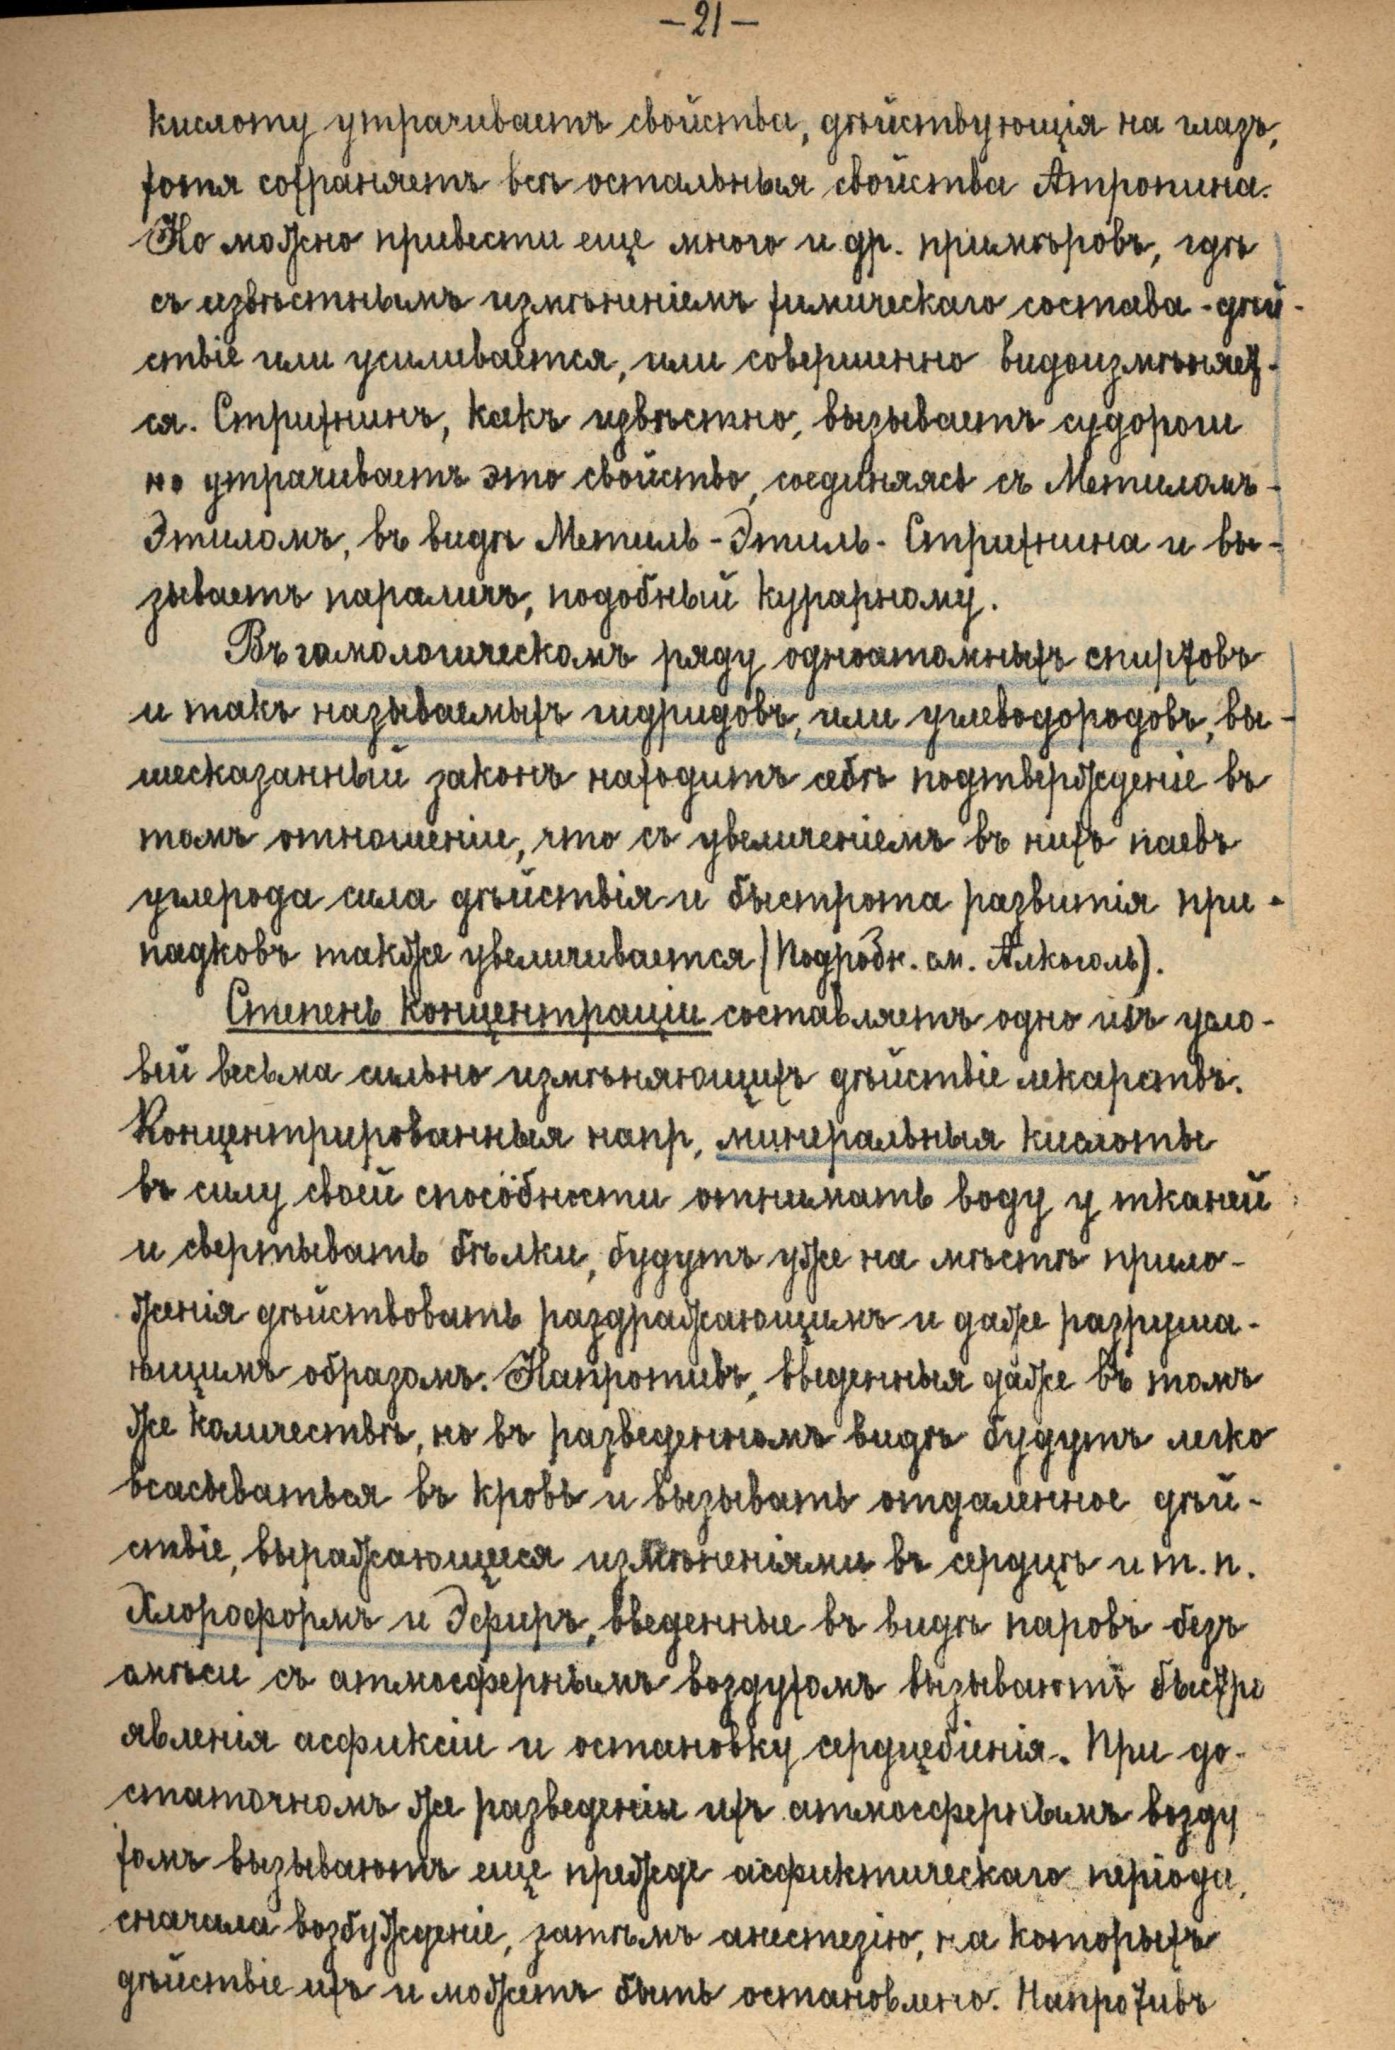 –21–
кислоту утрачиваетъ свойства, дѣйствующія на глазъ,
хотя сохраняетъ всѣ остальныя свойства Атропина.
Но можно привести еще много и др. примѣровъ, гдѣ
съ извѣстнымъ измѣненіемъ химическаго состава - дѣй-
ствіе или усиливается, или совершенно видоизмѣняет-
ся. Стрихнинъ, какъ извѣстно, вызываетъ судороги
но утрачиваетъ это свойство, соединяясь съ Метиломъ-
Этиломъ, въ видѣ Метиль-Этиль-Стрихнина и вы-
зываетъ параличъ, подобный курарному.
Въ гомологическомъ ряду одноатомныхъ спиртовъ
и такъ называемыхъ гидридовъ, или углеводородовъ, вы-
шесказанный законъ находитъ себѣ подтвержденіе въ
томъ отношеніи, что съ увеличеніемъ въ нихъ паевъ
углерода сила дѣйствія и быстрота развитія при-
падковъ также увеличивается (Подробн. см. Алкоголь).
Степень концентраціи составляетъ одно изъ усло-
вій весьма сильно измѣняющихъ дѣйствіе лекарствъ.
Концентрированныя напр, минеральныя кислоты
въ силу своей способности отнимать воду у тканей
и свертывать бѣлки, будутъ уже на мѣстѣ прило-
женія дѣйствовать раздражающимъ и даже разруша-
ющимъ образомъ. Напротивъ, введенныя даже въ томъ
же количествѣ, но въ разведенномъ видѣ будутъ легко
всасываться въ кровь и вызывать отдаленное дѣй-
ствіе, выражающееся измѣненіями въ сердцѣ и т. п.
Хлороформъ и Эфиръ, введенные въ видѣ паровъ безъ
смѣси съ атмосфернымъ воздухомъ вызываютъ быстро
явленія асфиксіи и остановку сердцебіенія. При до-
статочномъ же разведеніи ихъ атмосфернымъ возду
хомъ вызываютъ еще прежде асфиктическаго періода,
сначала возбужденіе, затѣмъ анестезію, на которыхъ
дѣйствіе ихъ и можетъ быть остановлено. Напротивъ